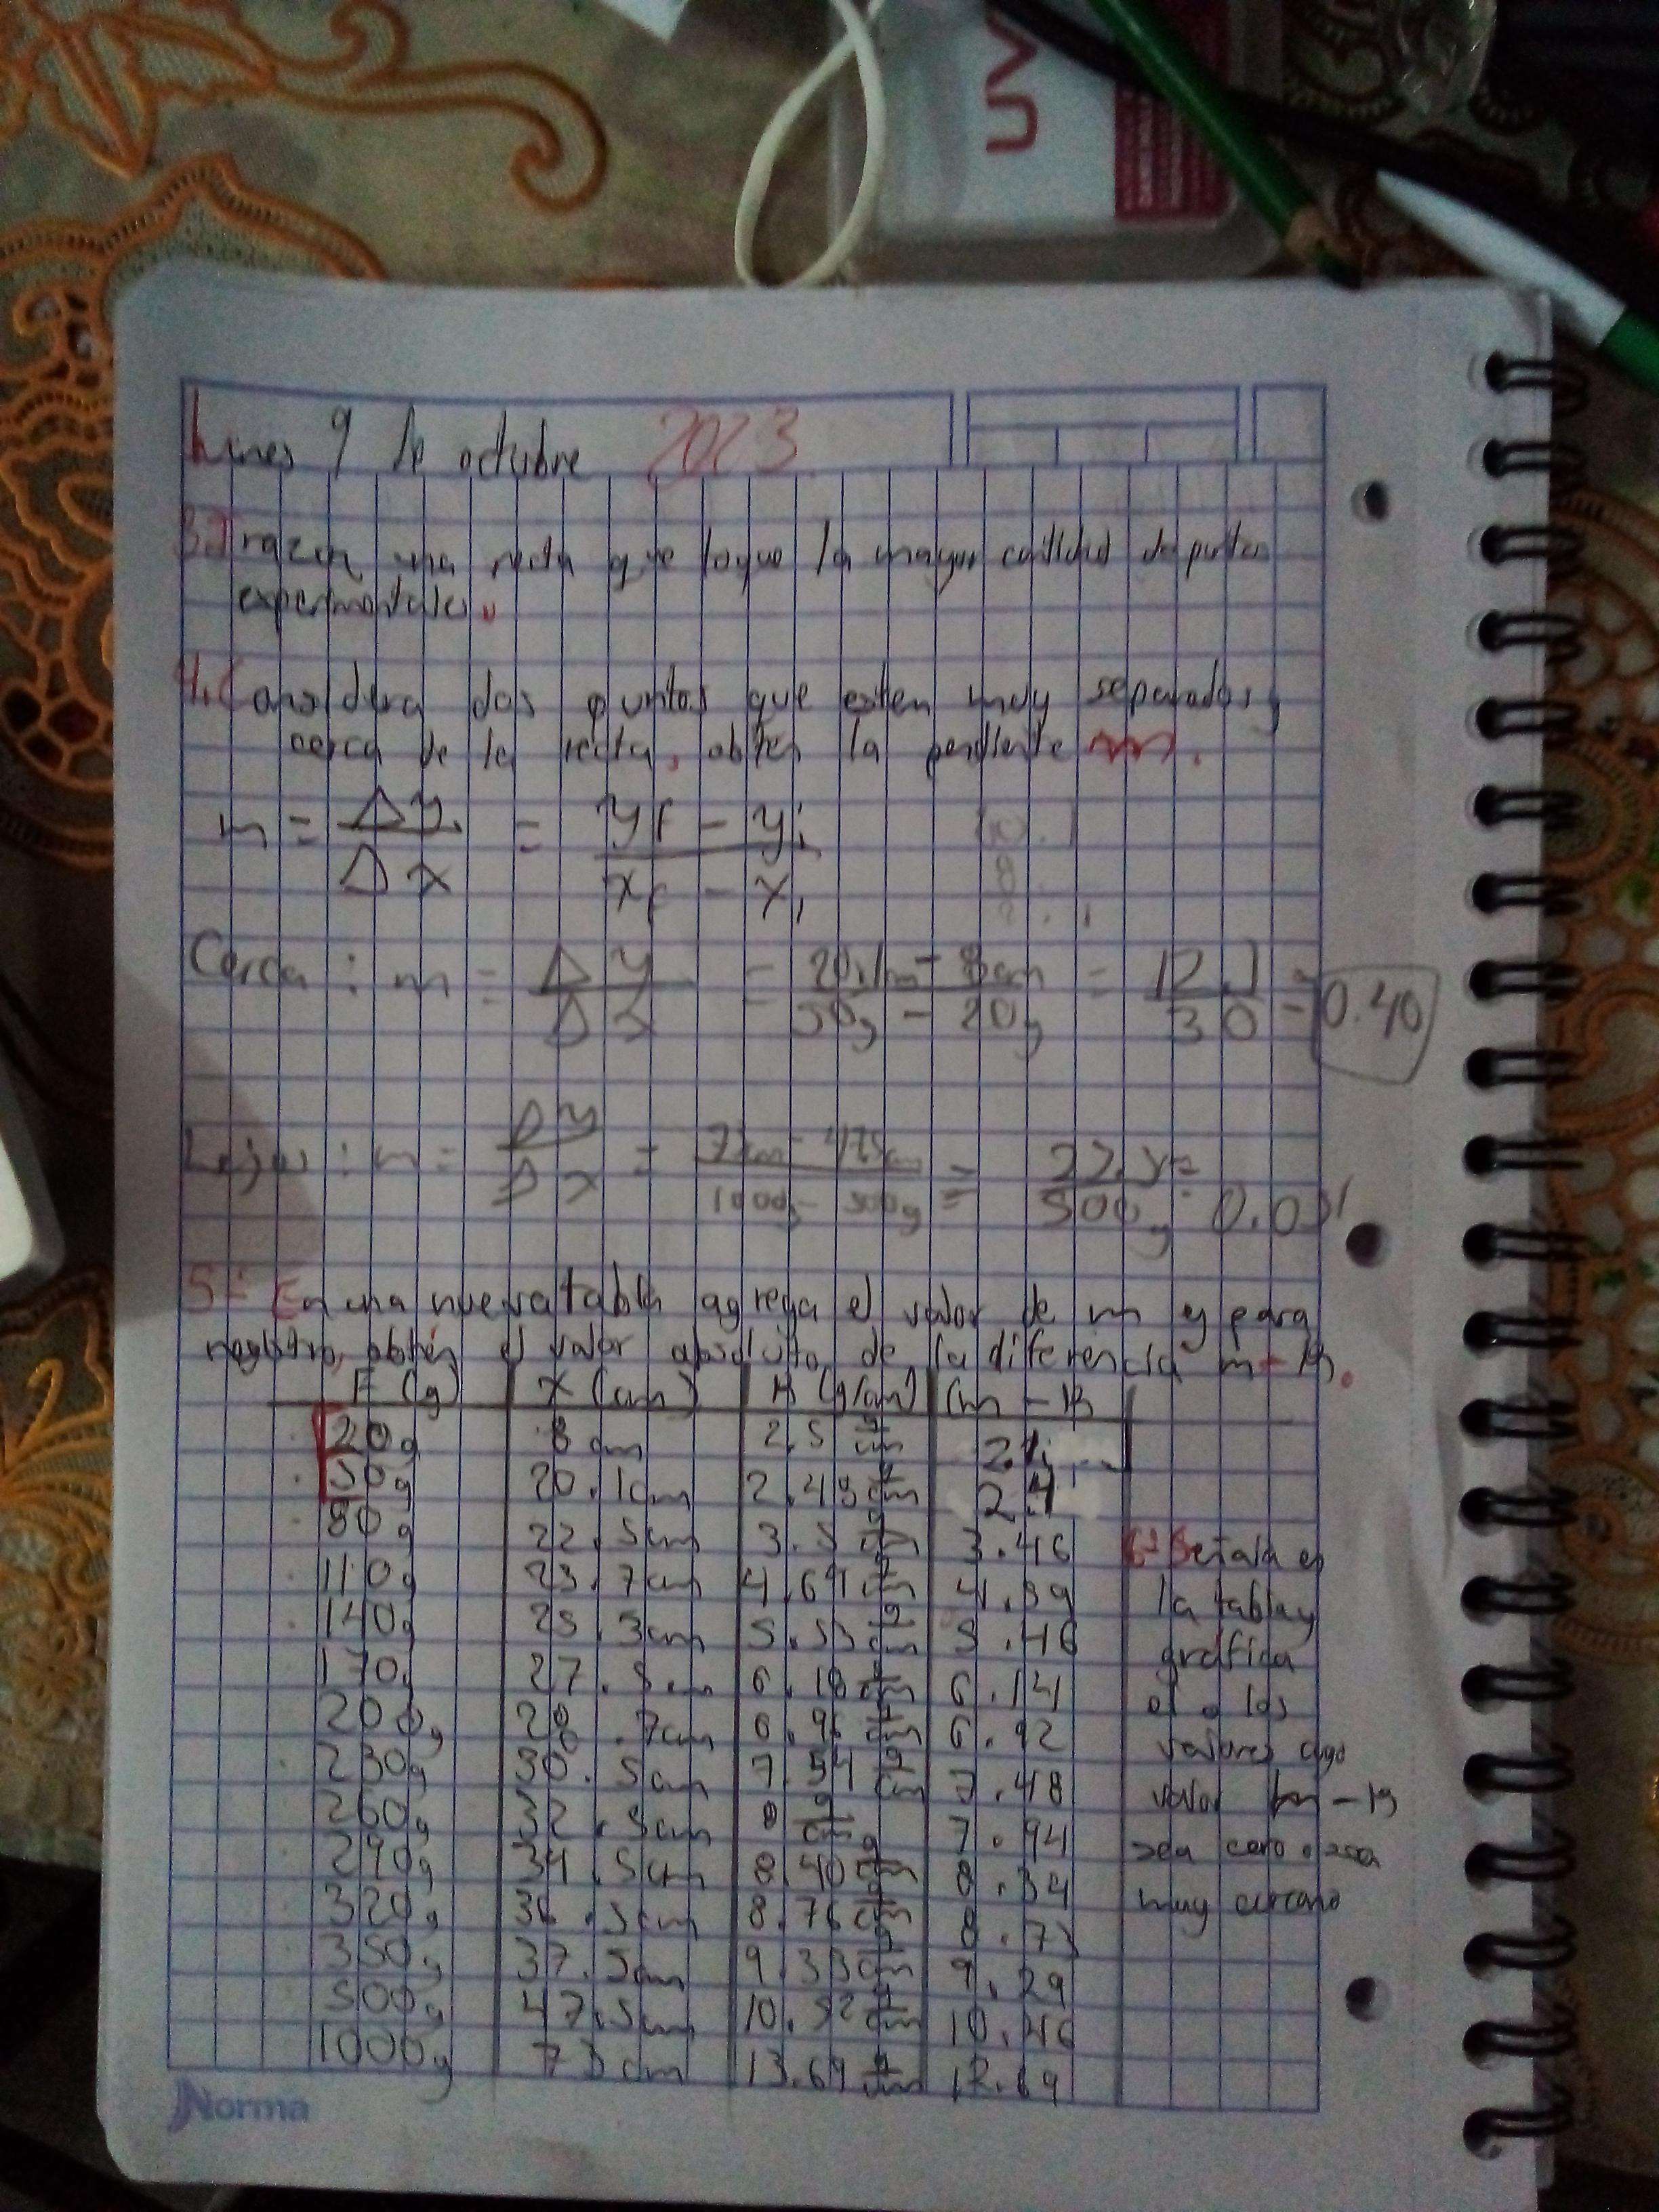 UV
Lunes 9 de octubre 2023
3.Trazen una recta que toque la mayor cantidad de puntos
experimentales.
4.Considera dos puntos que esten muy separados y
cerca de la recta, obten la pendiente m.
m = Δy / Δx = yf - yi / xf - xi
Cerca : m = Δy / Δx = 20.1cm - 8cm / 50g - 20g = 12.1 / 30 = 0.40
Lejos : m = Δy / Δx = 73cm - 47.5cm / 1000g - 500g = 500g 0.051
5: En una nueva tabla agrega el valor de m y para
registro, obtén el valor absoluto de la diferencia m - k.
F (g) X (cm) K (g/cm) m - k
20g 8cm 2.5 g/cm 2.1
50g 20.1cm 2.48 g/cm 2.4
80g 22.5cm 3.5 g/cm 3.46
110g 23.7cm 4.64 g/cm 4.59
140g 25.3cm 5.53 g/cm 5.46
170g 27.5cm 6.18 g/cm 6.141
200g 28.7cm 6.96 g/cm 6.92
230g 30.5cm 7.54 g/cm 7.48
260g 32.5cm 8 g/cm 7.94
290g 34.5cm 8.40 g/cm 8.34
320g 36.5cm 8.76 g/cm 8.73
350g 37.5cm 9.33 g/cm 9.29
500g 47.5cm 10.52 g/cm 10.46
1000g 73cm 13.69 g/cm
6: Señala en
la tabla y
gráfica
el o los
valores cuyo
valor m - k
sea cero o sea
muy cercano
Norma